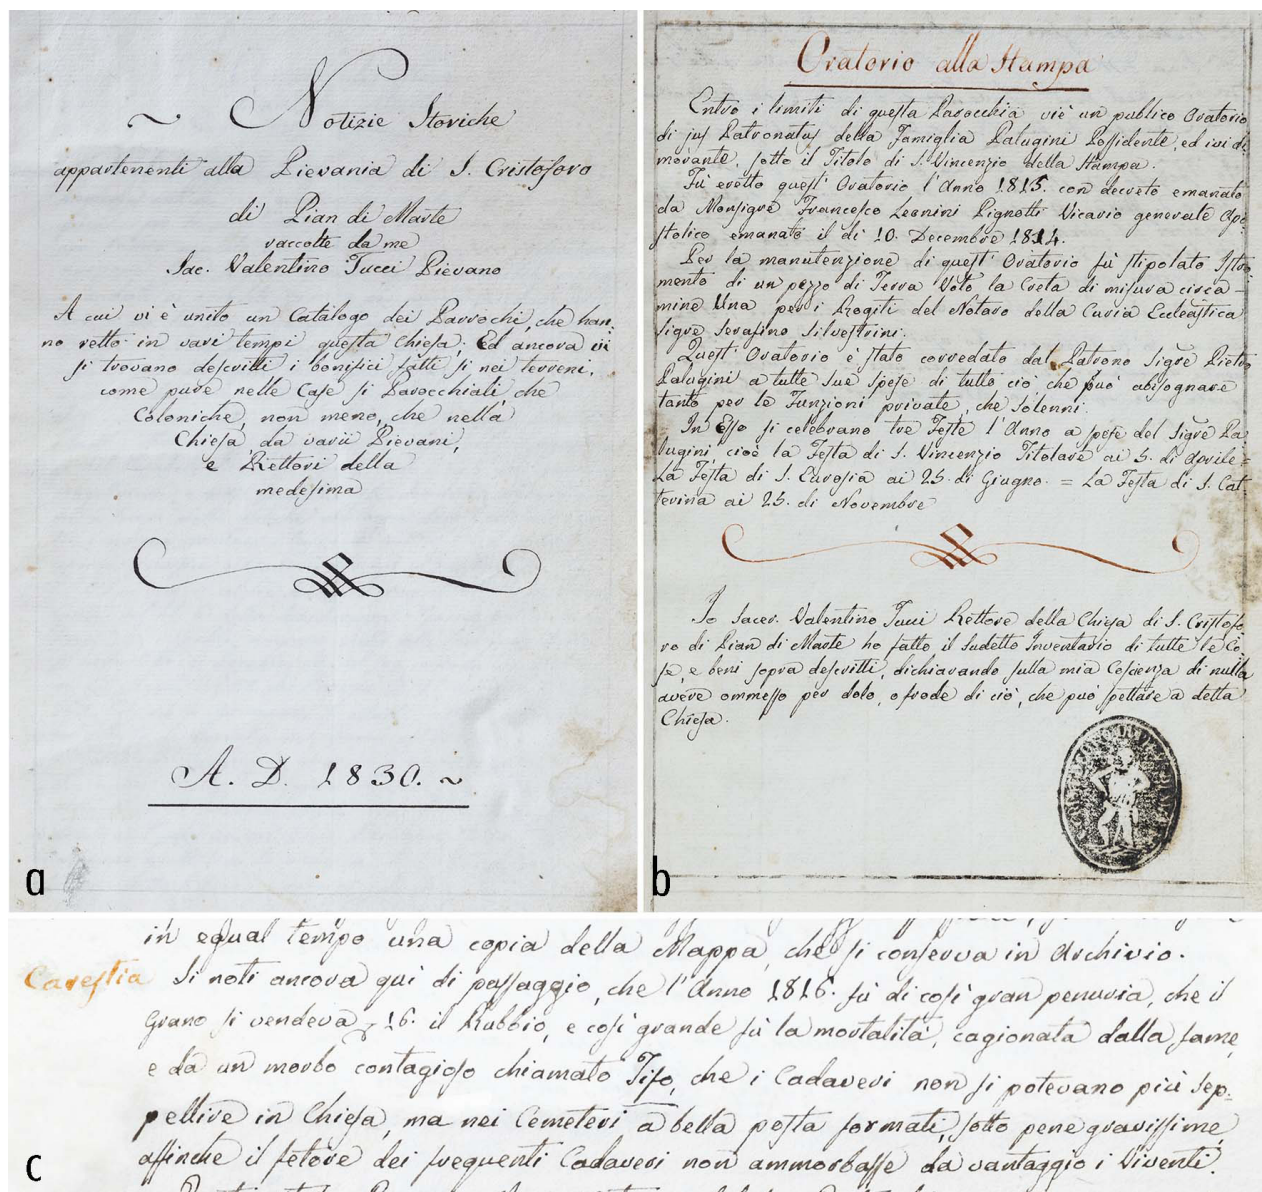 ~ Notizie Storiche
appartenenti alla Pievania di S. Cristoforo
di Pian di Marte
raccolte da me
Sac. Valentino Tucci Pievano
A cui vi è unito un Catalogo dei Parrochi, che han-
no retto in varj tempi questa Chiesa; Ed ancora vi
si trovano descritti i bonifici fatti sì nei terreni,
come pure nelle Case sì Parocchiali, che
Coloniche, non meno, che nella
Chiesa da varii Pievani,
e Rettori della
medesima
A. D. 1830. ~
a
Oratorio alla Stampa
Entro i limiti di questa Parocchia viè un publico Oratorio
di jus Patronatus della Famiglia Palugini Possidente, ed ivi di-
morante, sotto il Titolo di S. Vincenzio della Stampa.
Fù eretto quest' Oratorio l'Anno 1815. con decreto emanato
da Monsigre Francesco Leonini Pignotti Vicario generale Apo-
stolico emanato il di 10. Decembre 1814.
Per la manutenzione di quest' Oratorio fù stipolato Istro-
mento di un pezzo di Terra Voto la Creta di misura circa -
mine Una per i Rogiti del Notaro della Curia Eccleastica
Sigre Serafino Silvestrini.
Quest' Oratorio è stato corredato dal Patrono Sigre Pietro
Palugini a tutte sue spese di tutto ciò che può abisognare
tanto per le Funzioni private, che solenni.
In Esso si celebrano tre Feste l'Anno a spese del Sigre Pa-
lugini, cioè la Festa di S. Vincenzio Titolare ai 5. di Aprile =
La Festa di S. Eurosia ai 25. di Giugno. = La Festa di S. Cat-
terina ai 25. di Novembre
Io Sacer. Valentino Tucci Rettore della Chiesa di S. Cristofo-
ro di Pian di Marte ho fatto il sudetto Inventario di tutte le Co-
se, e beni sopra descritti, dichiarando sulla mia Coscienza di nulla
avere ommesso per dolo, o frode di ciò, che può spettare a detta
Chiesa.
b
in egual tempo una copia della Mappa, che si conserva in Archivio.
Carestia Si noti ancora quì di passaggio, che l'Anno 1816. fù di così gran penuria, che il
Grano si vendeva 16. il Rubbio, e così grande fù la mortalità, cagionata dalla fame,
e da un morbo contagioso chiamato Tifo, che i Cadaveri non si potevano più sep-
pellire in Chiesa, ma nei Cemeterj a bella posta formati, sotto pene gravissime,
affinche il fetore dei frequenti Cadaveri non ammorbasse da vantaggio i Viventi.
c